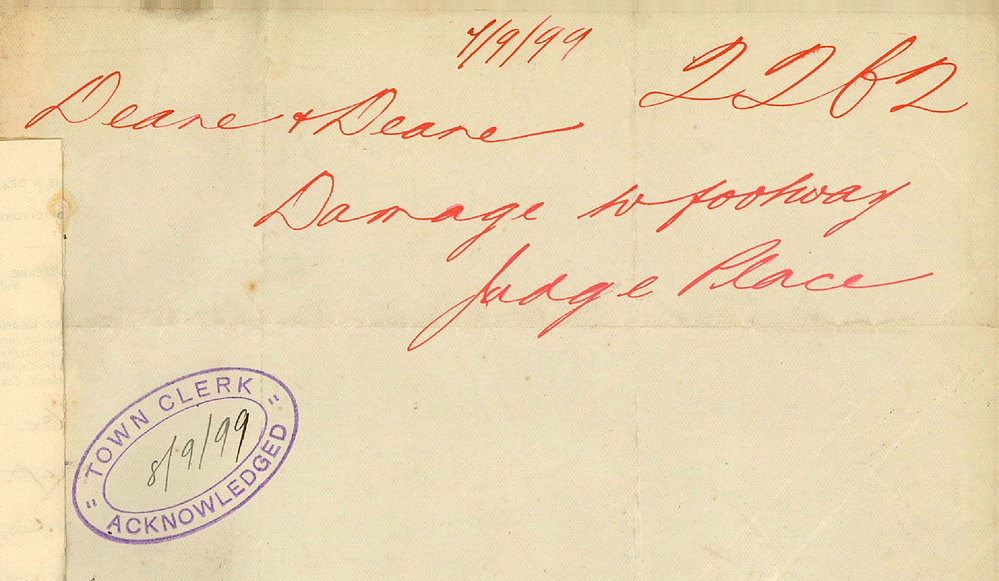 7/9/99
2262
Deane & Deane
Damage to footway
Judge Place
"TOWN CLERK"
8/9/99
ACKNOWLEDGED